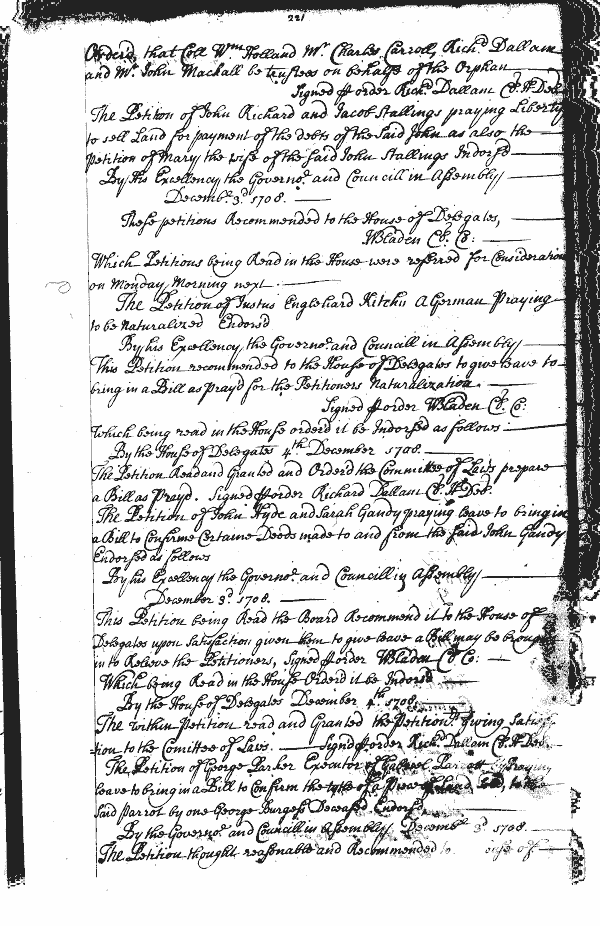 221
Orderd, that Coll Wm. Holland Mr. Charles Carroll, Richd Dallam
and Mr. John Mackall be trustees on behalfe of the Orphan
Signed p order Richd. Dallam Cl. H Del
The Petition of John Richard and Jacob Stallings praying Liberty
to sell Land for payment of the debts of the said John as also the
petition of Mary the wife of the said John Stallings Indorsd
By His Excellency the Governor. and Councill in Assembly
Decembr. 3d. 1708.
These petitions Recommended to the House of Delegates,
WBladen Cl. Co:
Which Petitions being Read in the House were referred for Consideration
on Monday Morning next
The Petition of Justus Englehard Kitchin A German Praying
to be Naturalized Endorsd
By his Excellency the Governor. and Councill in Assembly
This Petition recommended to the House of Delegates to give leave to
bring in a Bill as Prayd for the Petitioners Naturalization.
Signed p order WBladen Cl. Co:
Which being read in the House orderd it be Indorsed as follows
By the House of Delegates 4th December 1708.
The Petition Read and Granted and Orderd the Committee of Laws prepare
a Bill as Prayd. Signed p order Richard Dallam Cl. H Del.
The Petition of John Hyde and Sarah Gandy praying leave to bring in
a Bill to Confirme Certaine Deeds made to and from the said John Gandy
Endorsed as follows
By his Excellency the Governor. and Councill in Assembly
December 3d. 1708.
This Petition being Read the Board Recommend it to the House of
Delegates upon satisfaction given them to give leave a Bill may be brought
in to Relieve the Petitioners, Signed p order WBladen Cl. Co:
Which being Read in the House Orderd it be Indorsd
By the House of Delegates December 4th 1708.
The within Petition read and Granted the Petitionr. giving satis
tion to the Comittee of Laws. Signd p order Richd. Dallam Cl. H Del.
The Petition of George Parker Executor of Gabriel Parrott Praying
leave to bring in a Bill to Confirm the tytle of a Piece of Land sold to the
said Parrot by one George Burgess Deceased Endorsd
By the Governor. and Councill in Assembly Decembr 3d 1708.
The Petition thought reasonable and Recommended ouse of